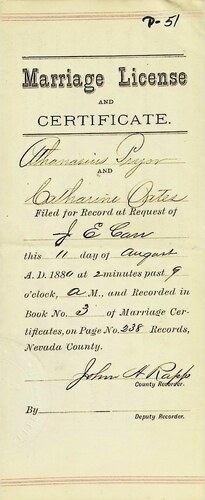 D-51
Marriage License
AND
CERTIFICATE.
Athanasius Pryor
AND
Catharine Oates
Filed for Record at Request of
J E Carr
this 11 day of August
A. D. 1880 at 2 minutes past 9
o'clock, A M., and Recorded in
Book No. 3 of Marriage Cer-
tificates, on Page No. 238 Records,
Nevada County.
John A Rapp
County Recorder.
By
Deputy Recorder.